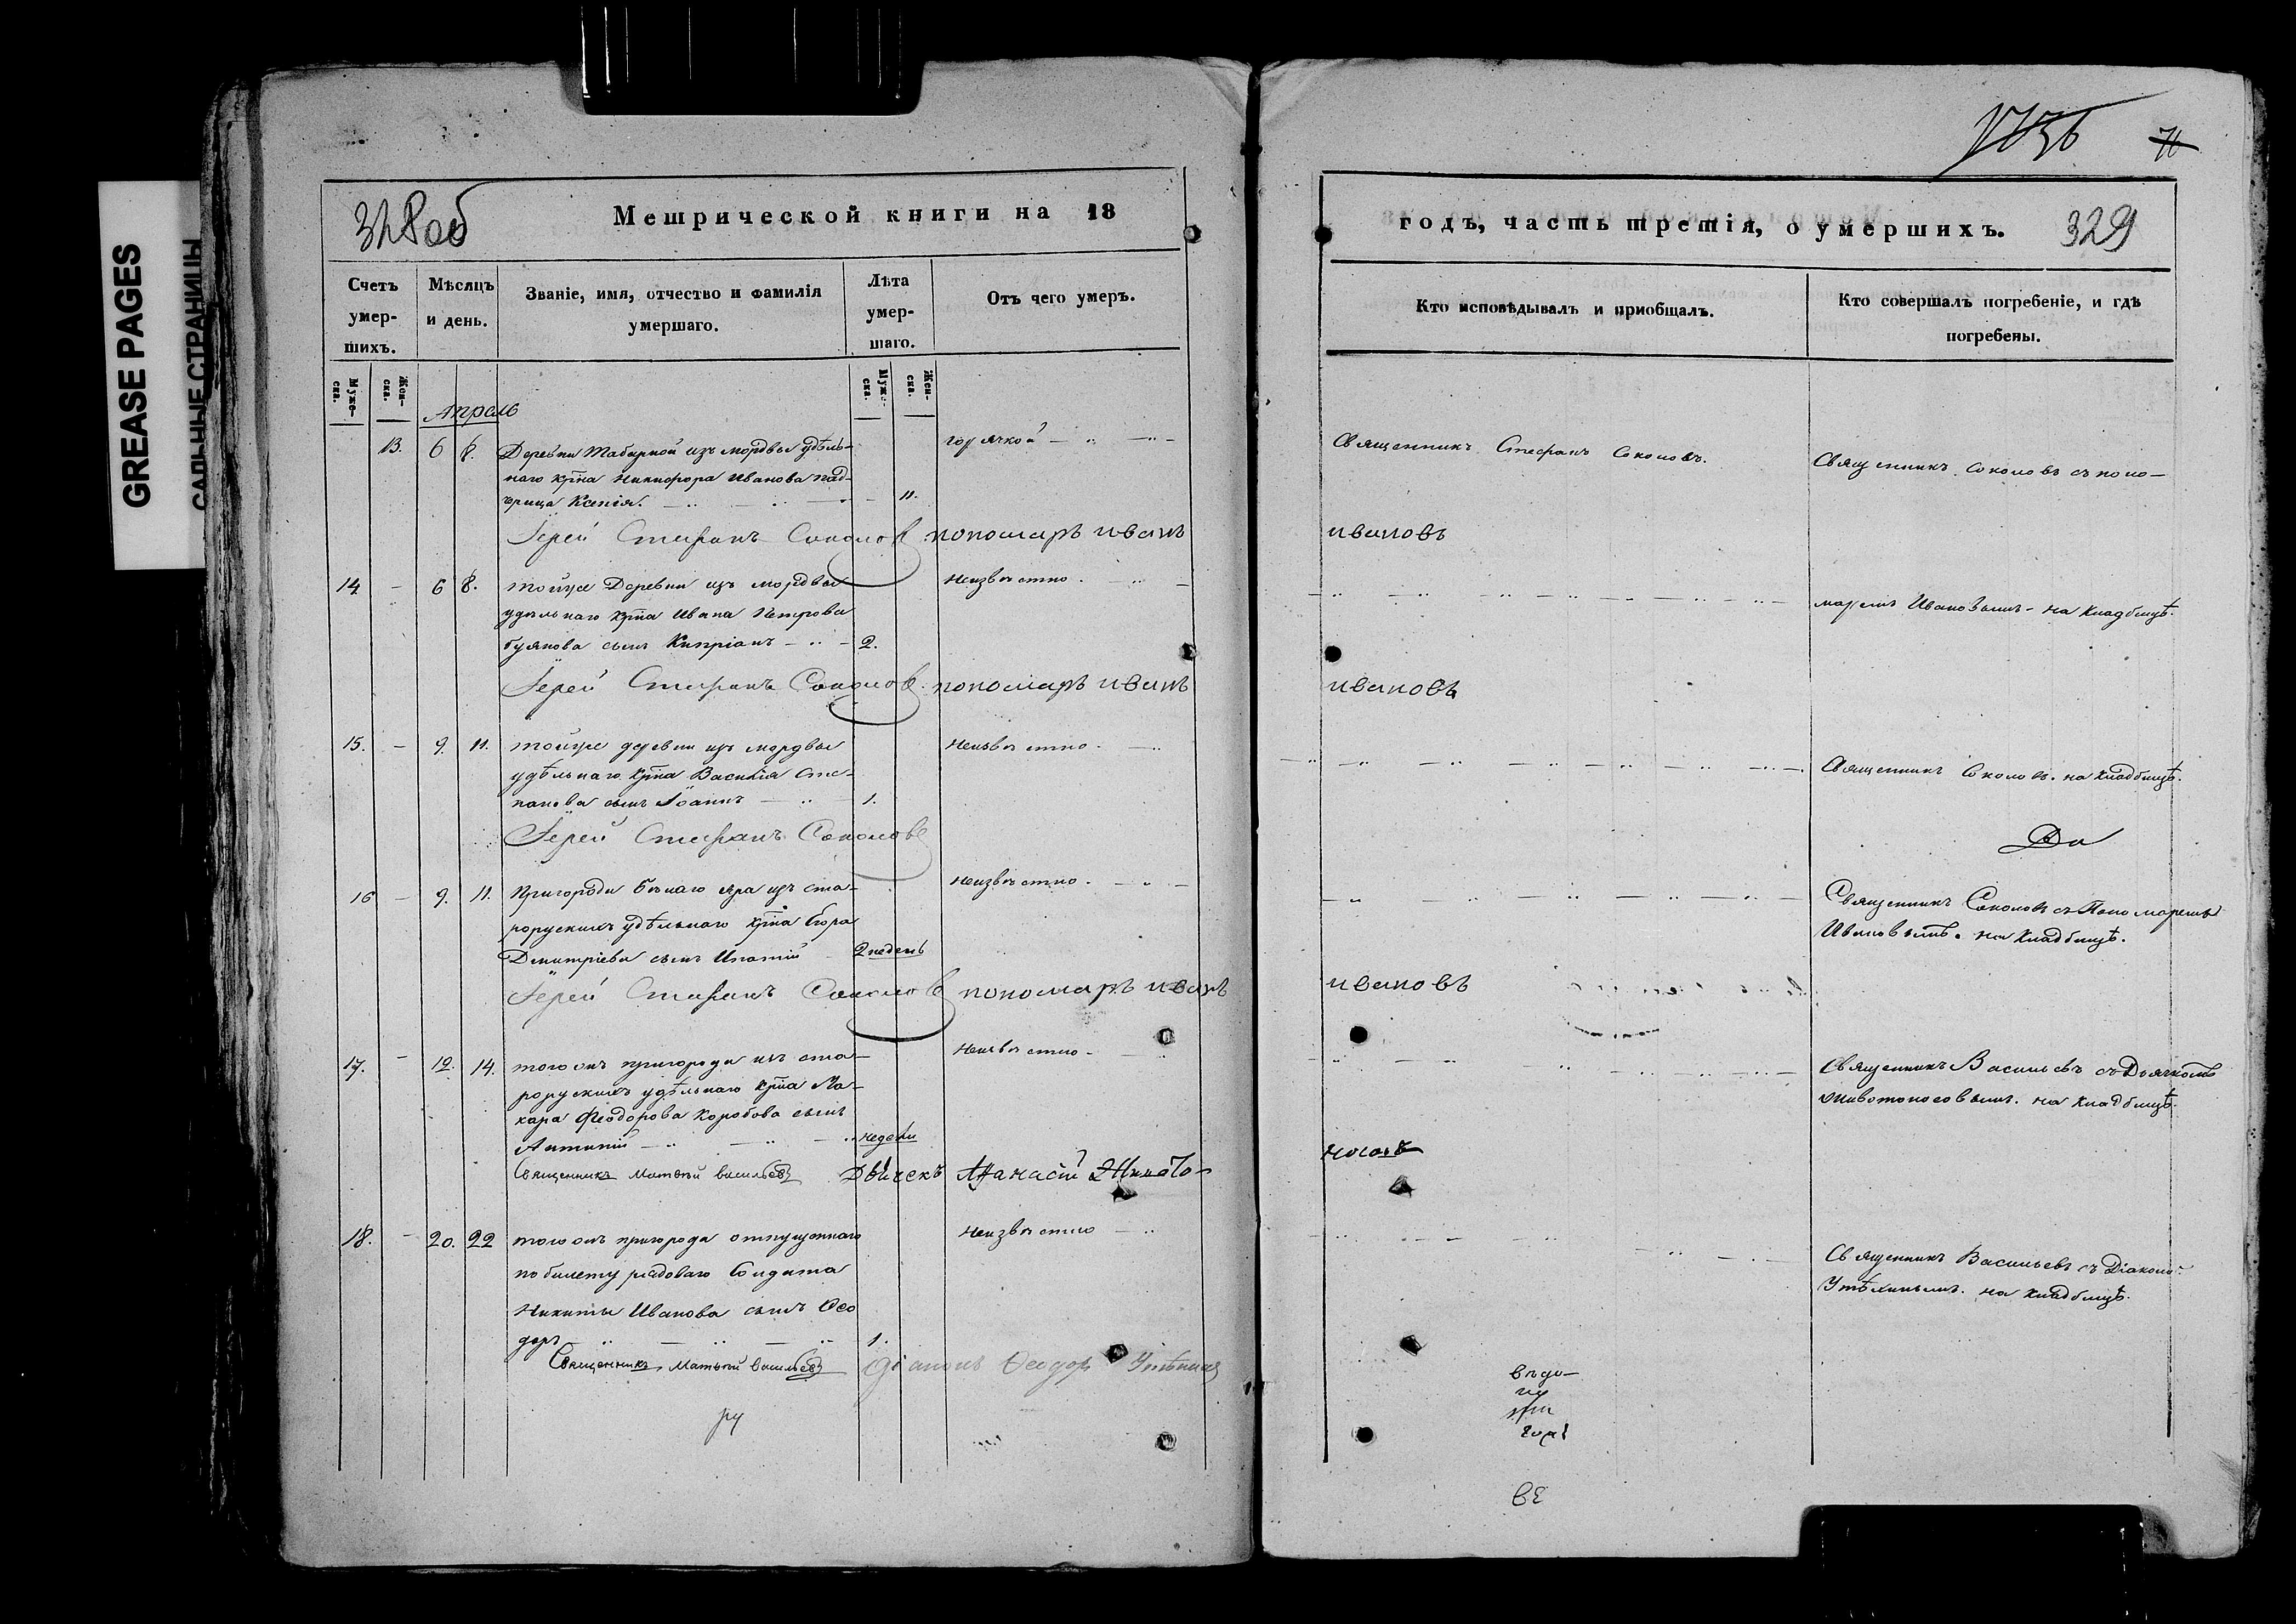 GREASE PAGES
САЛЬНЫЕ СТРАНИЦЫ
328об
Метрической книги на 18
Счетъ умер-шихъ.
Мѣсяцъ и день.
Званіе, имя, отчество и фамилія умершаго.
Лѣта умер-шаго.
Отъ чего умеръ.
Муже-ска.
Жен-ска.
Муже-ска.
Жен-ска.
Апрель
13. 6 8. Деревни Табурной изъ мордвы удѣль- горячкой
наго крт҃на Никифора Иванова пад-
черица Ксенія. 11.
Іерей Стефанъ Соколовъ пономарь иванъ
14 - 6 8. тойже Деревни изъ мордвы Неизвѣстно.
удѣльнаго крт҃на Ивана Петрова
буянова сынъ Кипріанъ 2.
Іерей Стефанъ Соколовъ. пономарь иванъ
15. - 9. 11. тойже деревни изъ мордвы Неизвѣстно.
удѣльнаго крт҃на Василія Сте-
панова сынъ Іоаннъ 1.
Іерей Стефанъ Соколовъ
16 - 9. 11. Пригорода бѣлаго яра изъ ста- Неизвѣстно.
рорускихъ удѣльнаго крт҃на Егора
Дмитріева сынъ Ипатій 2 недель
Іерей Стефанъ Соколовъ пономарь иванъ
17. - 12. 14. тогожъ пригорода изъ ста- Неизвѣстно
рорускихъ удѣльнаго крт҃на Ма-
кара Феодорова Коробова сынъ
Антипій недели
Священникъ Матвѣй васильевъ Дьячекъ Афанасій Живото-
18. - 20. 22 тогожъ пригорода отпущеннаго Неизвѣстно
по билету рядоваго Солдата
Никиты Иванова сынъ Фео
доръ 1.
Священникъ Матвѣй васильевъ діаконъ Феодоръ Утѣхинъ
ру
1736
71
годъ, часть третія, о умершихъ.
329
Кто исповѣдывалъ и пріобщалъ.
Кто совершалъ погребеніе, и гдѣ погребены.
Священникъ Стефанъ Соколовъ.
Священникъ Соколовъ съ поно-
ивановъ
маремъ Ивановымъ - на кладбищѣ.
ивановъ
Священникъ Соколовъ. на кладбищѣ.
Священникъ Соколовъ съ Пономаремъ
Ивановымъ. на кладбищѣ.
ивановъ
Священникъ Васильевъ съ Дьячкомъ
Животоносовымъ. на кладбищѣ.
носовъ
Священникъ Васильевъ съ Діакон
Утѣхинымъ. на кладбищѣ.